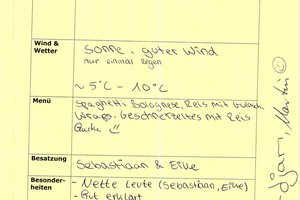 Wind &
Wetter
Sonne, guter Wind
nur einmal Regen
~ 5°C - 10°C
Menü
Spaghetti Bolognese, Reis mit Gulasch
Wraps, Geschnetzeltes mit Reis
Gurke
Besatzung
Sebastiaan & Eike
Besonder-
heiten
- Nette Leute (Sebastiaan, Eike)
- Gut erklärt
Martin